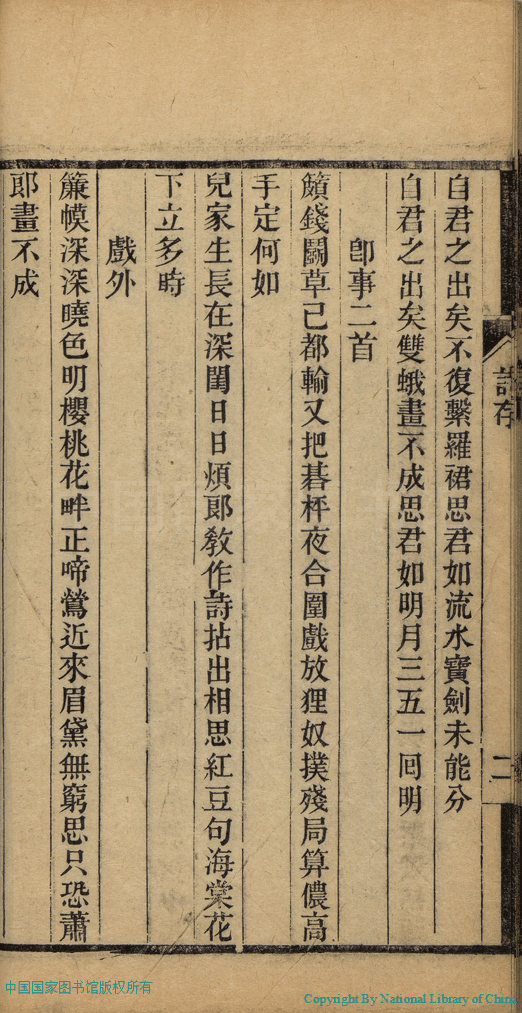 自君之出矣不復繫羅裙思君如流水寶劍未能分
自君之出矣雙蛾畫不成思君如明月三五一回明
卽事二首
饋錢鬬草已都輸又把碁枰夜合圍戲放狸奴撲殘局算儂高
手定何如
兒家生長在深閨日日煩郎敎作詩拈出相思紅豆句海棠花
下立多時
戲外
簾幙深深曉色明櫻桃花畔正啼鶯近來眉黛無窮思只恐蕭
郎畫不成
二
中国国家图书馆版权所有
Copyright By National Library of China